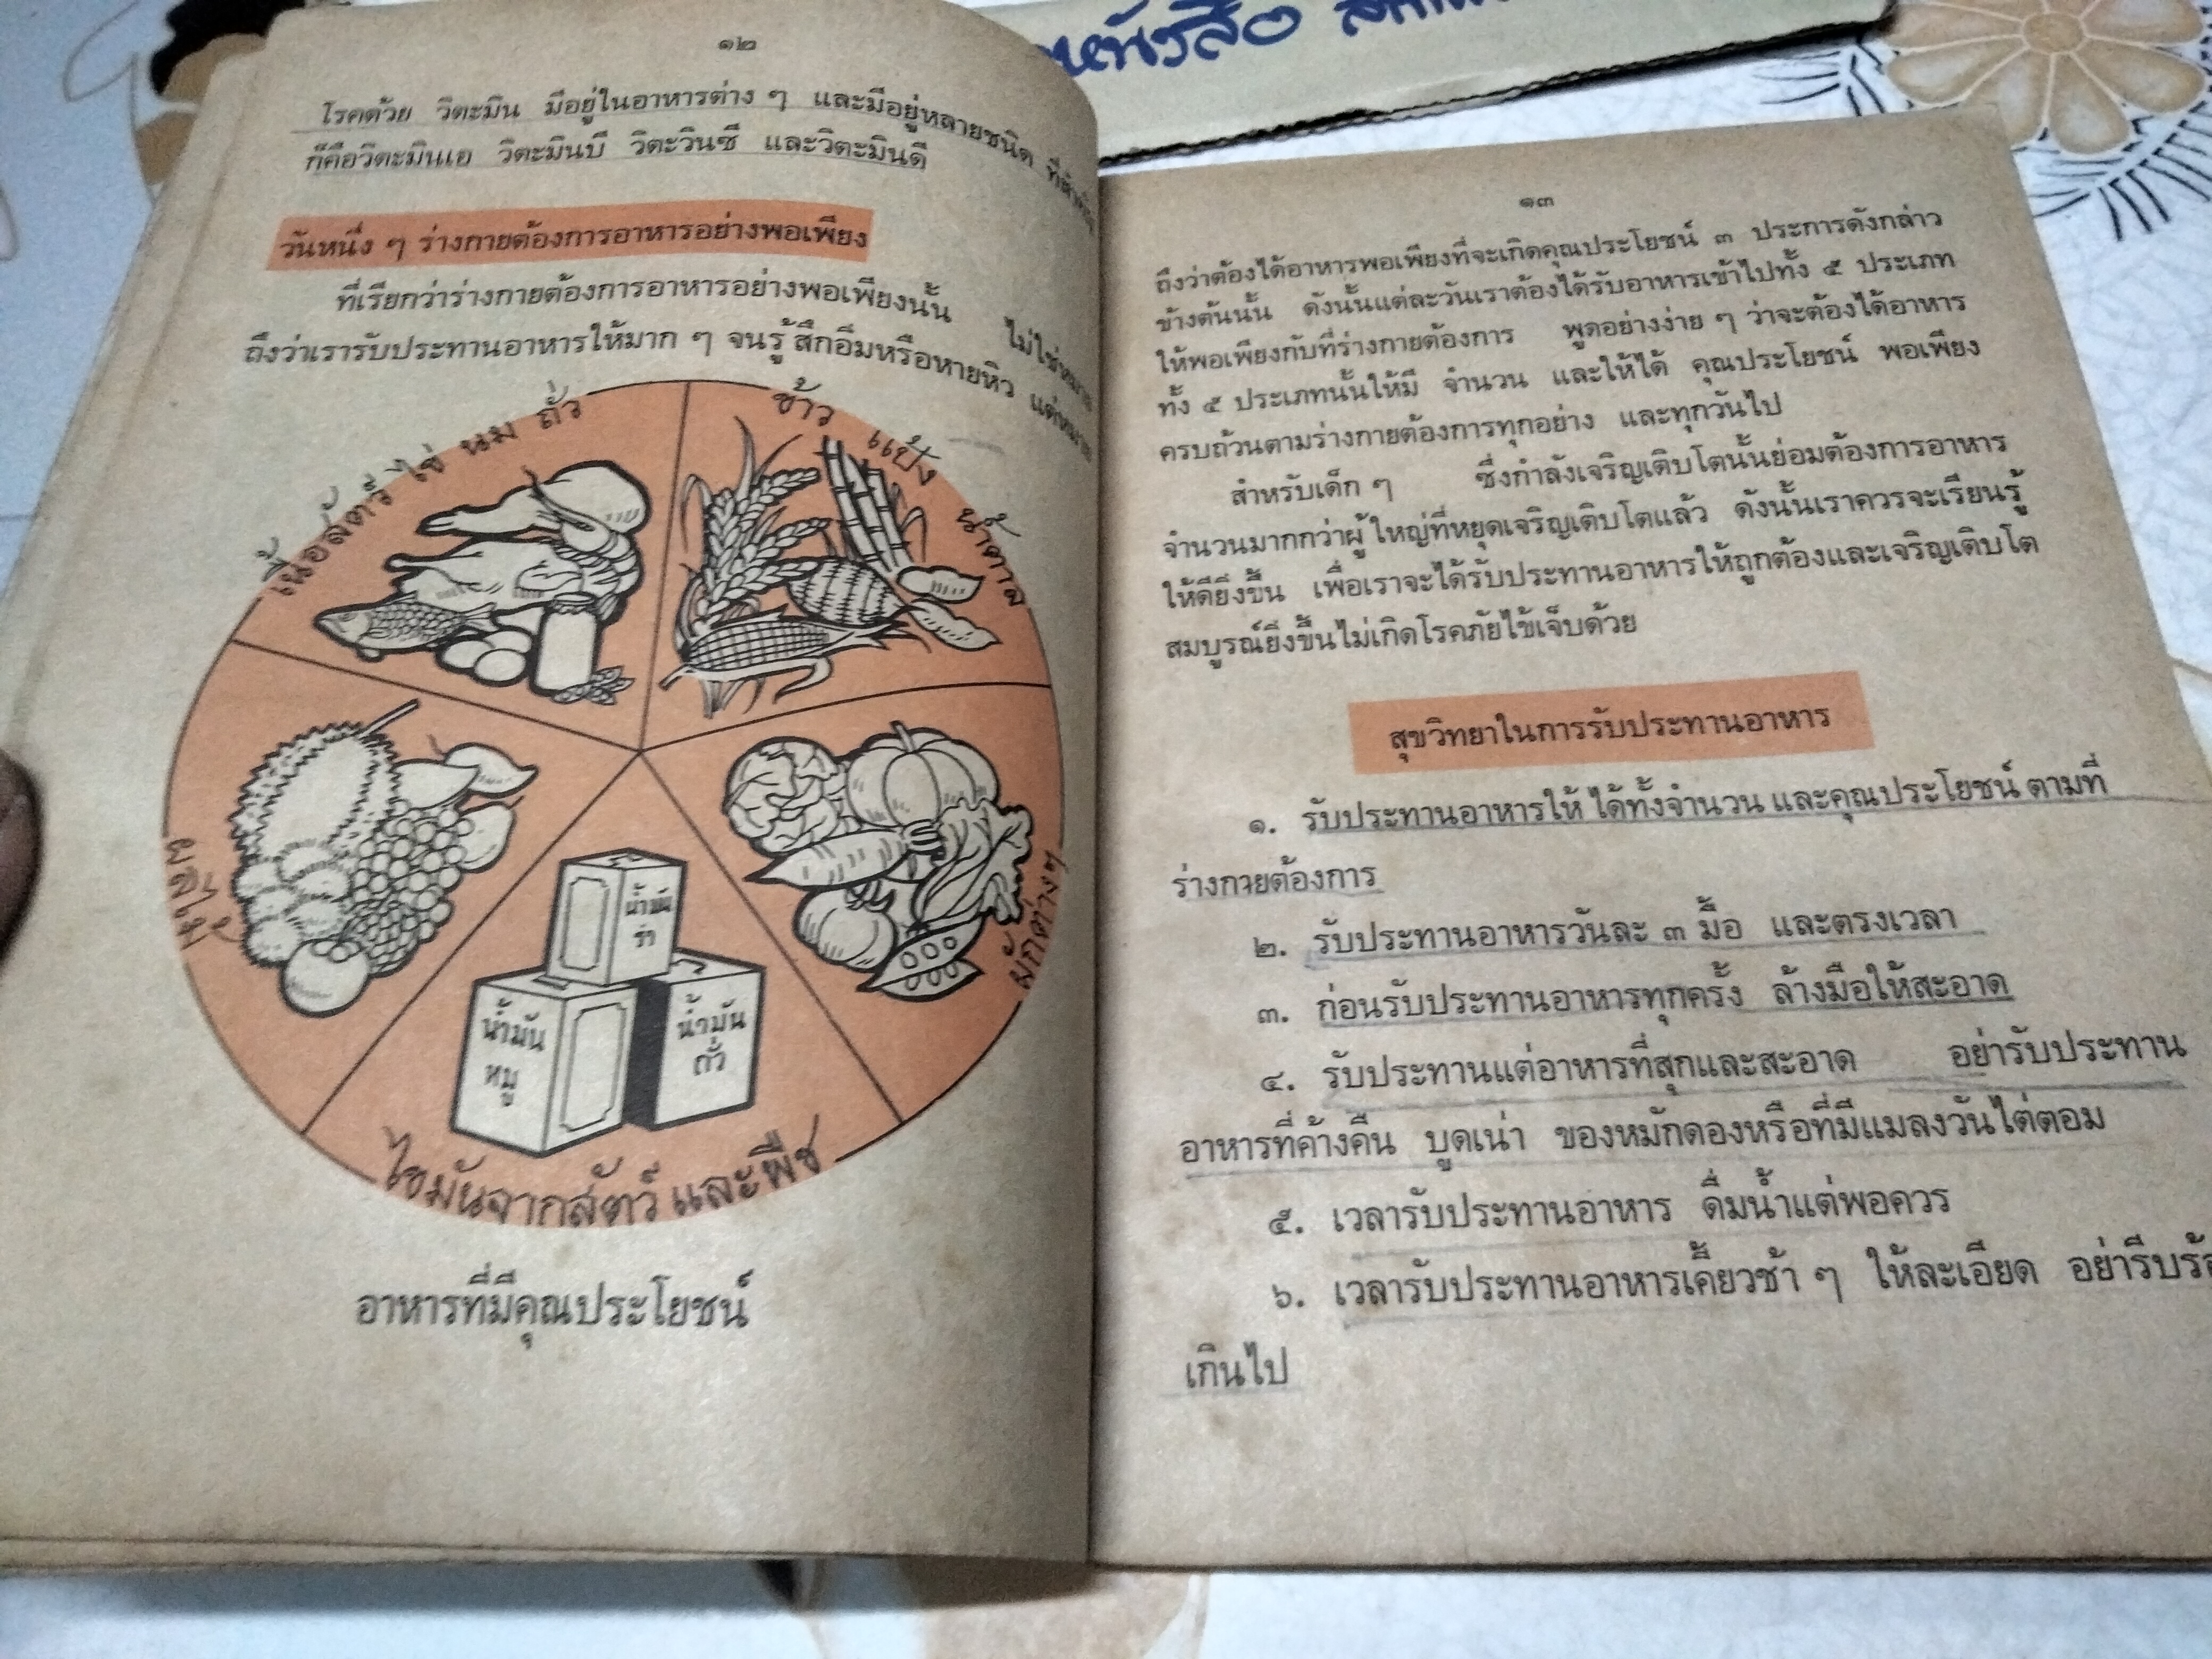 หนังสือ
๑๒
โรคด้วย วิตะมิน มีอยู่ในอาหารต่าง ๆ และมีอยู่หลายชนิด
ก็คือวิตะมินเอ วิตะมินบี วิตะวินซี และวิตะมินดี
วันหนึ่ง ๆ ร่างกายต้องการอาหารอย่างพอเพียง
ที่เรียกว่าร่างกายต้องการอาหารอย่างพอเพียงนั้น
ถึงว่าเรารับประทานอาหารให้มาก ๆ จนรู้สึกอิ่มหรือหายหิว
เนื้อสัตว์ ไข่ นม ถั่ว
ข้าว แป้ง น้ำตาล
ผลไม้
ผักต่างๆ
น้ำมัน
รำ
น้ำมัน
หมู
น้ำมัน
ถั่ว
ไขมันจากสัตว์ และพืช
อาหารที่มีคุณประโยชน์
๑๓
ถึงว่าต้องได้อาหารพอเพียงที่จะเกิดคุณประโยชน์ ๓ ประการดังกล่าว
ข้างต้นนั้น ดังนั้นแต่ละวันเราต้องได้รับอาหารเข้าไปทั้ง ๕ ประเภท
ให้พอเพียงกับที่ร่างกายต้องการ พูดอย่างง่าย ๆ ว่าจะต้องได้อาหาร
ทั้ง ๕ ประเภทนั้นให้มี จำนวน และให้ได้ คุณประโยชน์ พอเพียง
ครบถ้วนตามร่างกายต้องการทุกอย่าง และทุกวันไป
สำหรับเด็ก ๆ ซึ่งกำลังเจริญเติบโตนั้นย่อมต้องการอาหาร
จำนวนมากกว่าผู้ใหญ่ที่หยุดเจริญเติบโตแล้ว ดังนั้นเราควรจะเรียนรู้
ให้ดียิ่งขึ้น เพื่อเราจะได้รับประทานอาหารให้ถูกต้องและเจริญเติบโต
สมบูรณ์ยิ่งขึ้นไม่เกิดโรคภัยไข้เจ็บด้วย
สุขวิทยาในการรับประทานอาหาร
๑. รับประทานอาหารให้ ได้ทั้งจำนวน และคุณประโยชน์ ตามที่
ร่างกายต้องการ
๒. รับประทานอาหารวันละ ๓ มื้อ และตรงเวลา
๓. ก่อนรับประทานอาหารทุกครั้ง ล้างมือให้สะอาด
๔. รับประทานแต่อาหารที่สุกและสะอาด อย่ารับประทาน
อาหารที่ค้างคืน บูดเน่า ของหมักดองหรือที่มีแมลงวันไต่ตอม
๕. เวลารับประทานอาหาร ดื่มน้ำแต่พอควร
๖. เวลารับประทานอาหารเคี้ยวช้า ๆ ให้ละเอียด อย่ารีบร้อ
เกินไป